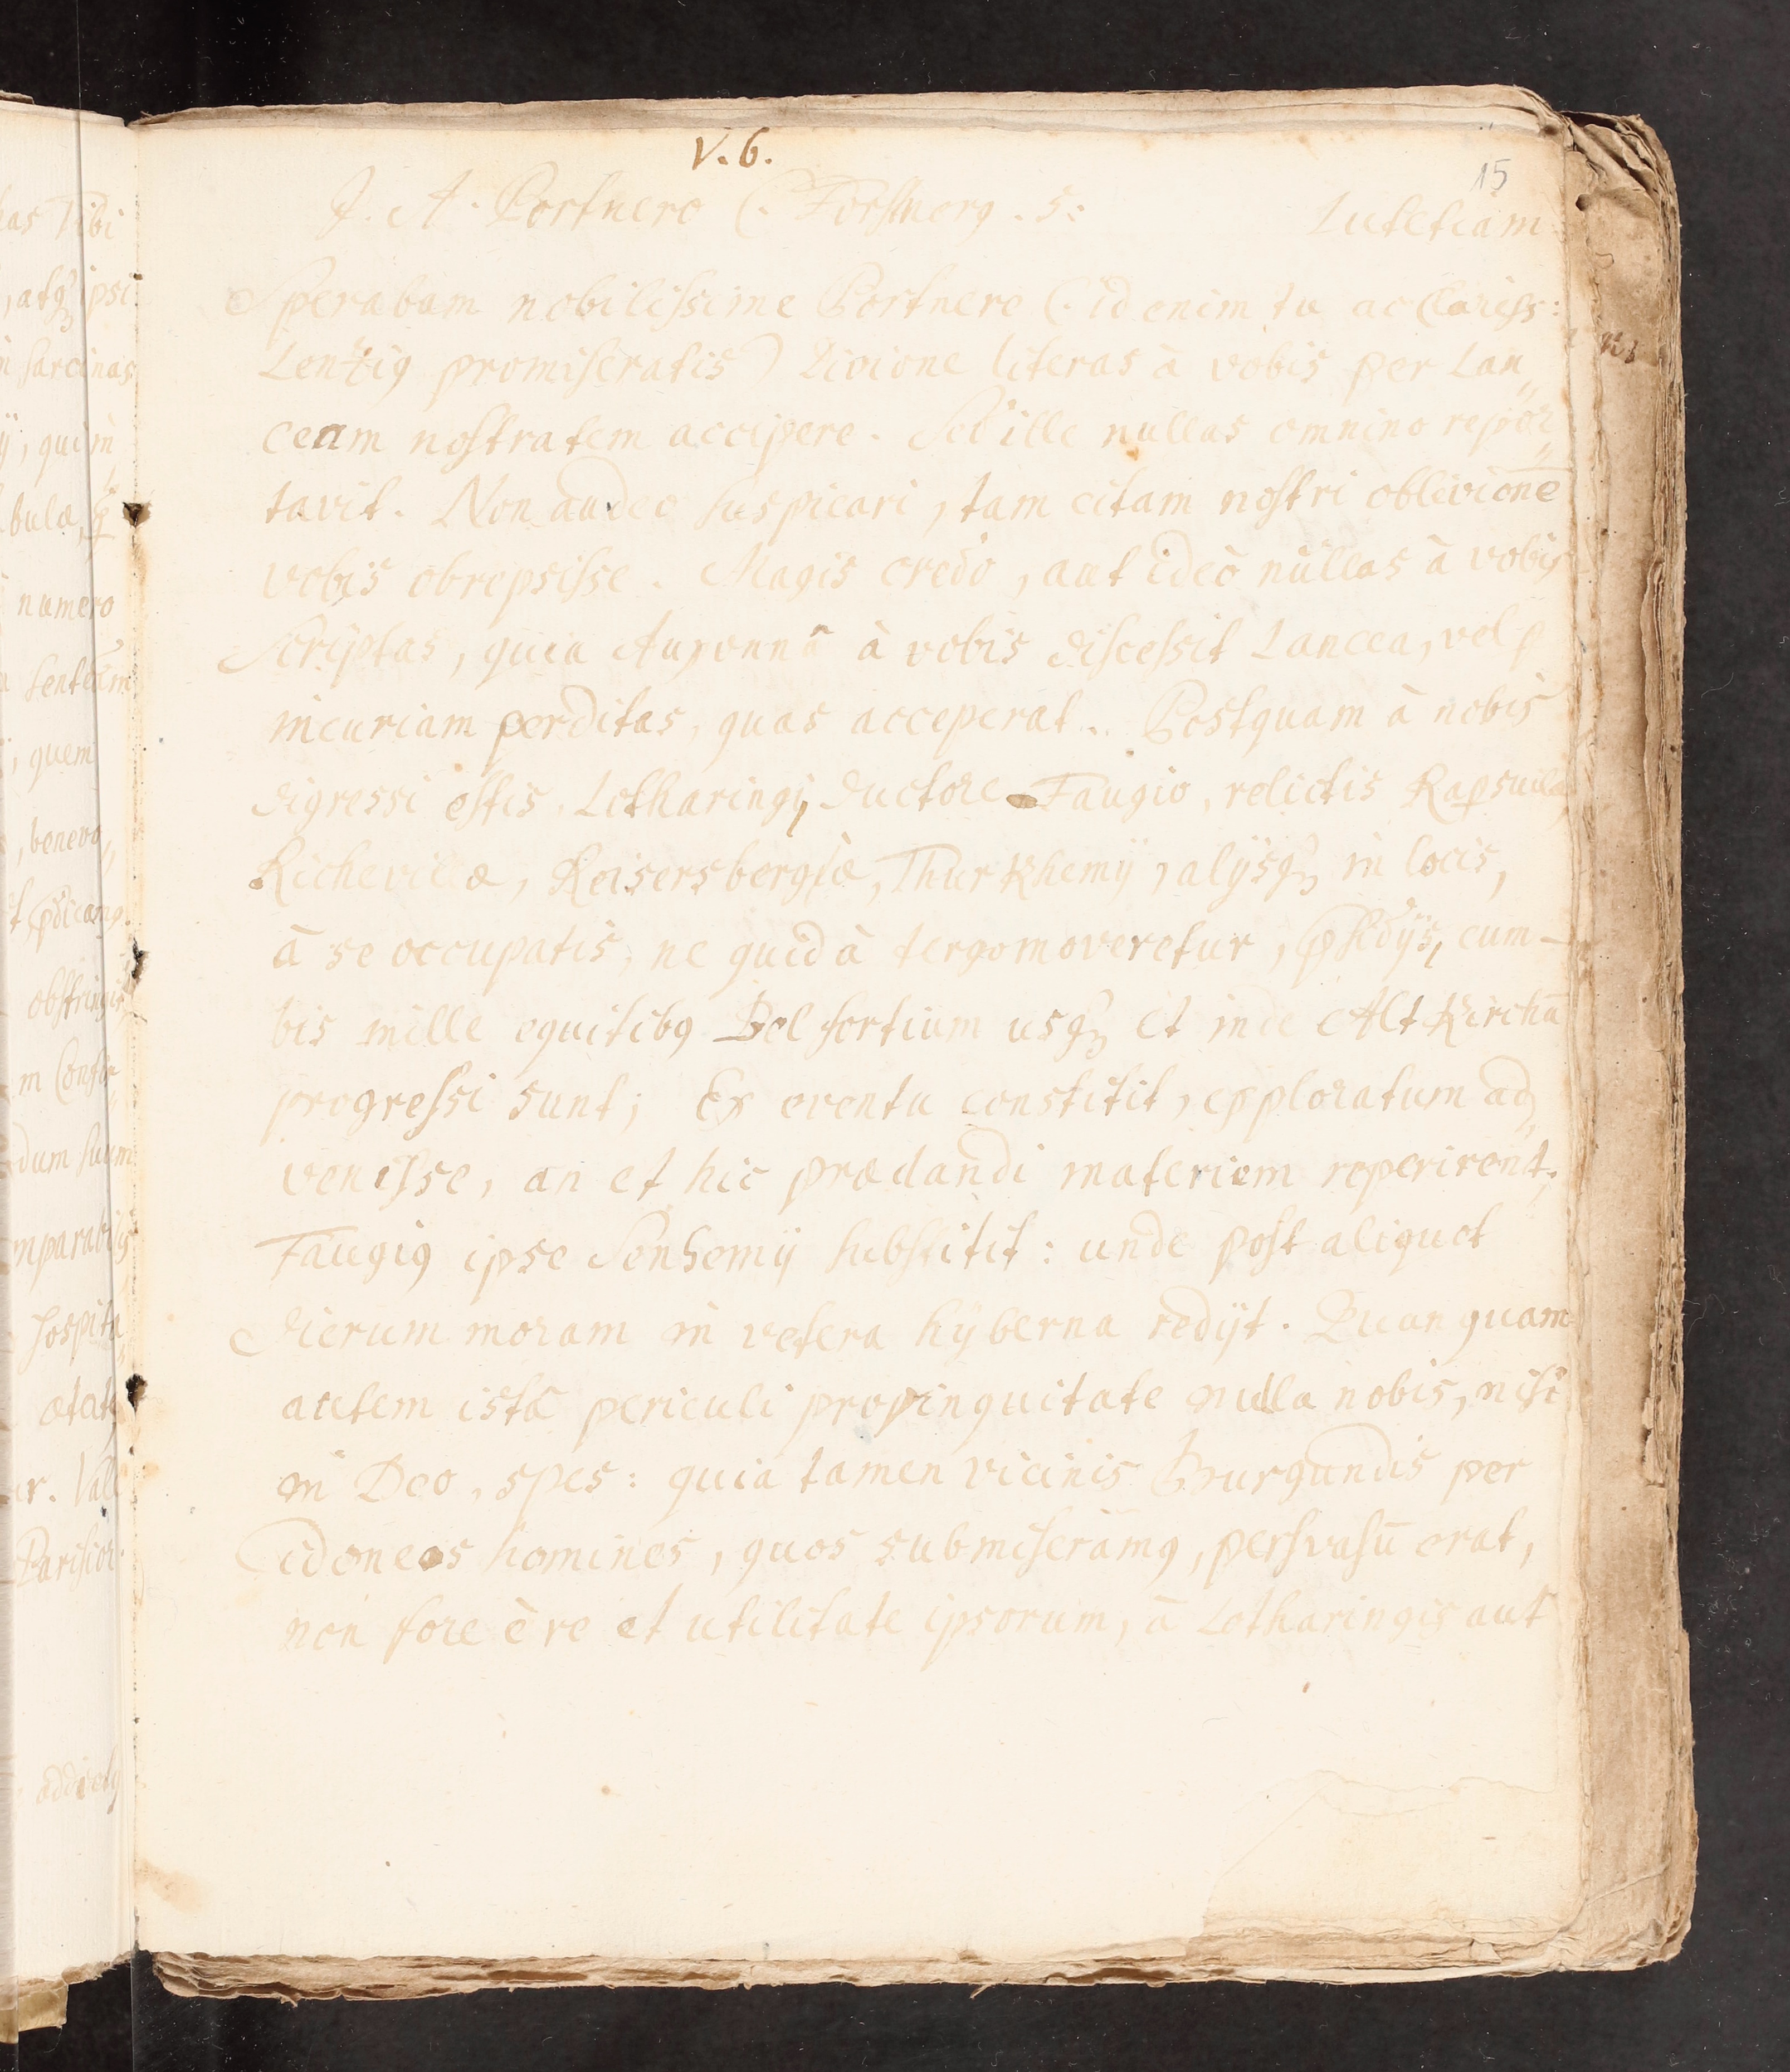 V. 6.
15
J. A. Portnero C. Forstnerg. S: Lutetiam
Sperabam nobilissime Portnere (: id enim tu ac Clariss:
Lentzig promiseratis) Divione literas à vobis per Lan„
ceam nostratem accipere. Sed ille nullas omnino repor„
tavit. Non audeo suspicari, tam citam nostri oblivionē
vobis obrepsisse. Magis credo, aut ideò nullas à vobis
Scriptas, quia Auxonnâ à vobis discessit Lancea, vel p
incuriam perditas, quas acceperat. Postquam à nobis
digressi estis, Lotharingi, ductore Faugio, relictis
Richevillæ, Keisersbergiæ, Thurkhemij, alijsq; in locis,
à se occupatis, ne quid à tergo moveretur, cum
bis mille equitibq Belfortium usq; et inde Altkirchā
progressi sunt; Ex eventu constitit, exploratum ad„
venisse, an et hic prædandi materiem reperirent.
Faugiq ipse Senhemij substitit: unde post aliquot
dierum moram in vetera hyberna redijt. Quanquam
autem istâ periculi propinquitate nulla nobis, nisi
in Deo, spes: quia tamen vicinis Burgundis per
idoneos homines, quos submiseramq, persvasū erat,
non fore è re et utilitate ipsorum, à Lotharingis aut